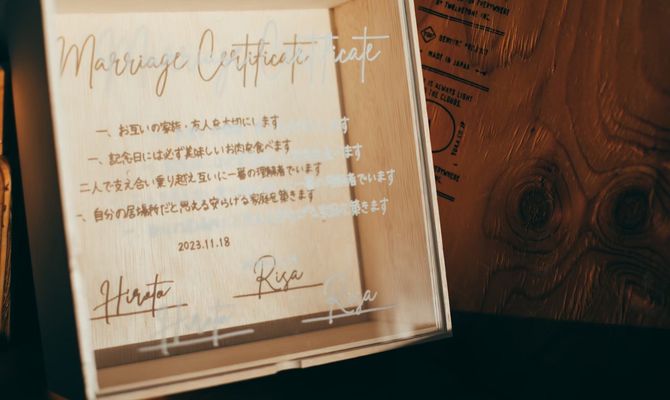 Marriage Certificate
一、お互いの家族・友人を大切にします
一、記念日には必ず美味しいお肉を食べます
二人で支え合い乗り越え互いに一番の理解者でいます
一、自分の居場所だと思える安らげる家庭を築きます
2023.11.18
Hirota
Risa
EVERYWHERE
BY TWELVETONE INC.
MADE IN JAPAN
IS ALWAYS LIGHT
THE CLOUDS.
EVERYWHERE